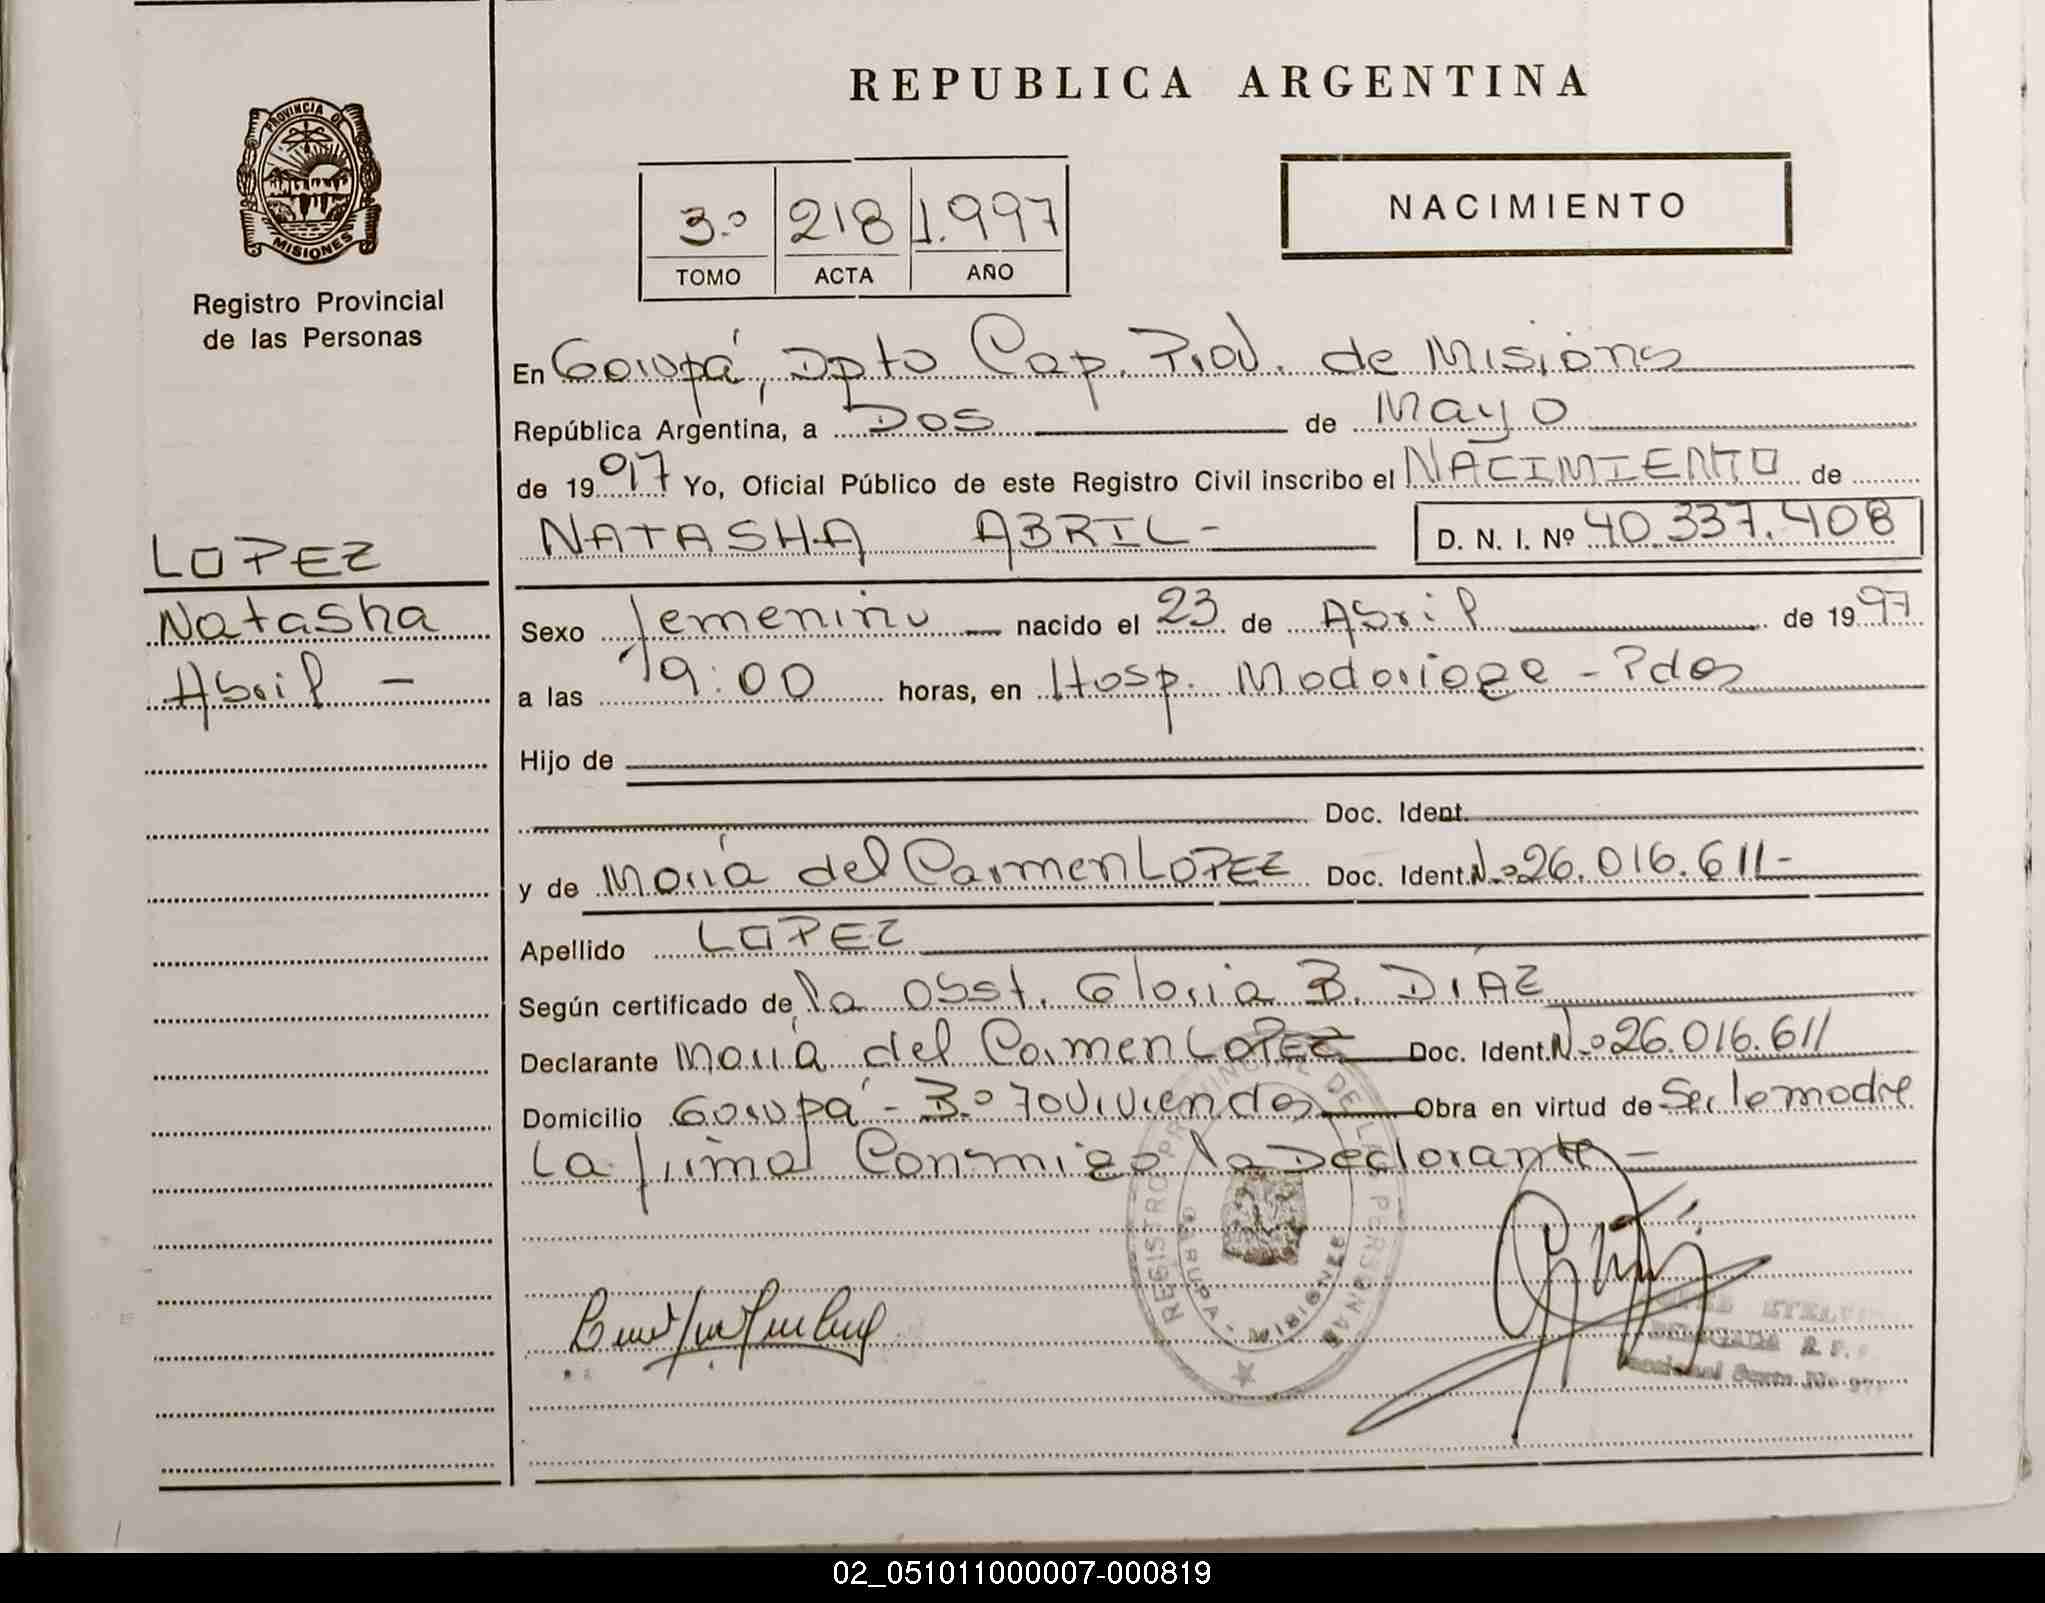 REPUBLICA ARGENTINA
PROVINCIA DE
MISIONES
Registro Provincial
de las Personas
3.º 218 1.997
TOMO ACTA AÑO
NACIMIENTO
En Garupá, Dpto Cap. Prov. de Misions
República Argentina, a Dos de Mayo
de 1997 Yo, Oficial Público de este Registro Civil inscribo el NACIMIENTO de
NATASHA ABRIL- D. N. I. Nº 40.337.408
LOPEZ
Natasha
Abril -
Sexo femenino nacido el 23 de Abril de 1997
a las 19:00 horas, en Hosp. Madariaga - Pdas
Hijo de
Doc. Ident.
y de María del Carmen LOPEZ Doc. Ident. N.º 26.016.611-
Apellido LOPEZ
Según certificado de la Obst. Gloria B. DIAZ
Declarante María del Carmen LOPEZ Doc. Ident. N.º 26.016.611
Domicilio Garupá - B.º 70 Viviendas Obra en virtud de Ser la madre
La firma Conmigo la Declarante -
REGISTRO PROVINCIAL DE LAS PERSONAS
GARUPA - MISIONES
02_051011000007-000819